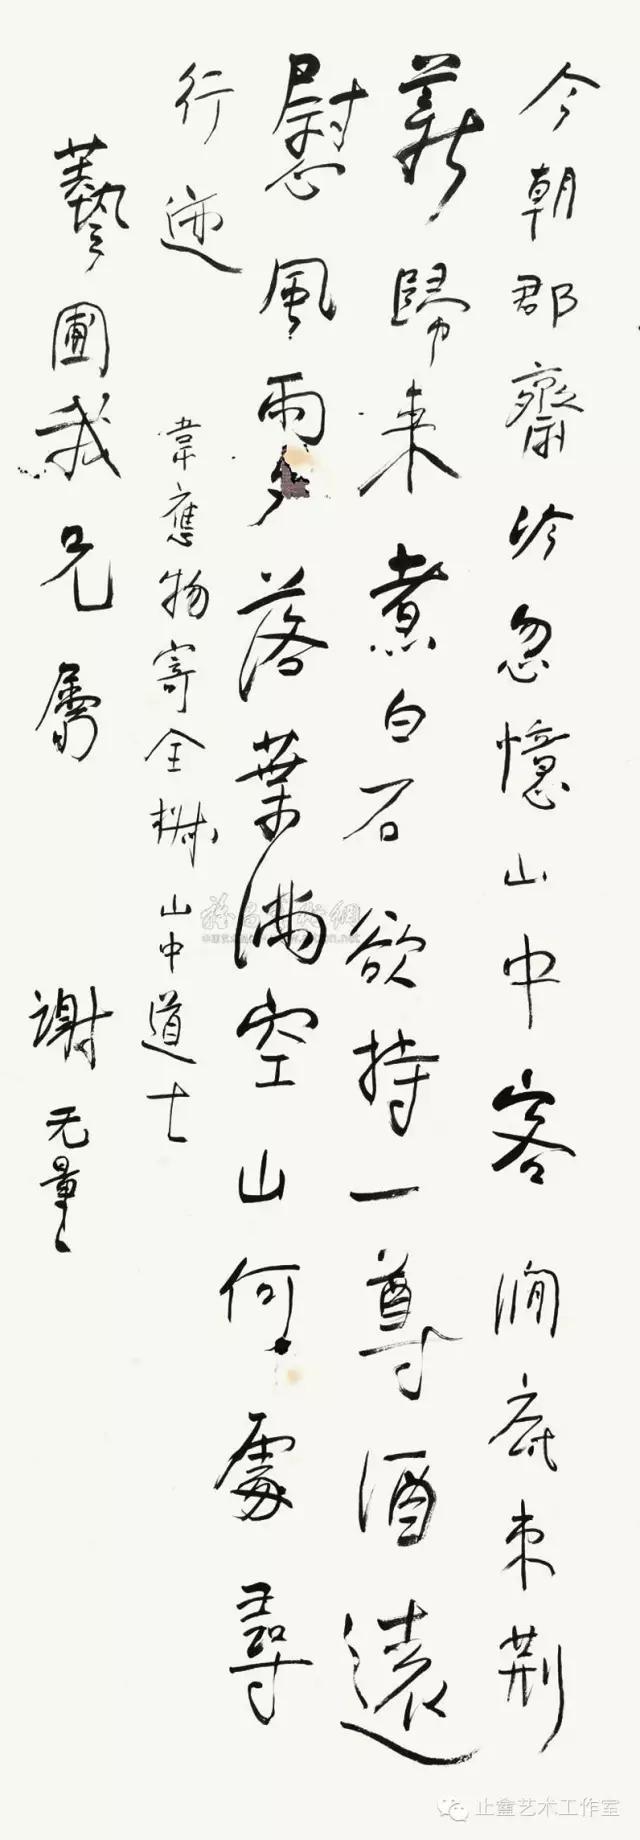 今朝郡齋冷忽憶山中客澗底束荆
薪歸来煮白石欲持一尊酒遠
慰風雨夕落葉滿空山何處尋
行迹
韋應物寄全椒山中道士
藝圃我兄屬
謝无量
止龕艺术工作室